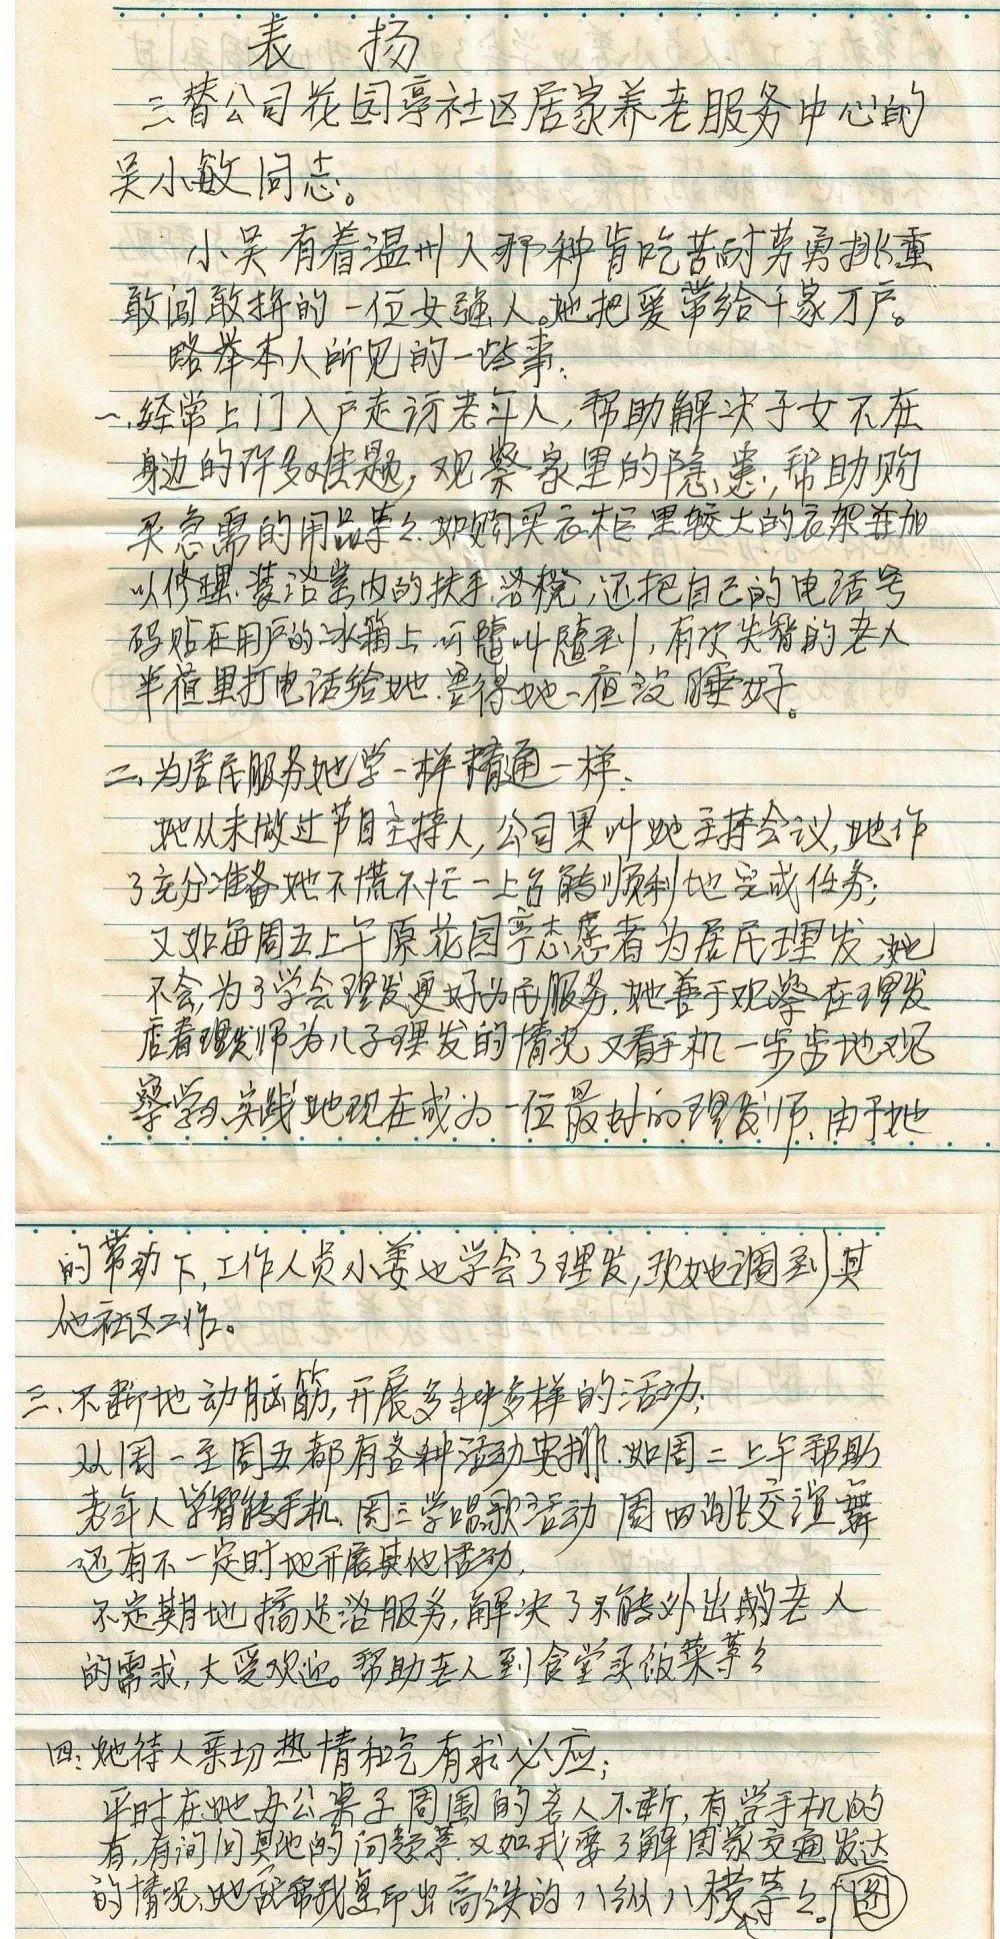 表扬
三替公司花园亭社区居家养老服务中心的
吴小敏同志。
小吴有着温州人那种肯吃苦耐劳勇挑重
敢闯敢拼的一位女强人。她把爱带给千家万户。
略举本人所见的一些事:
一、经常上门入户走访老年人,帮助解决子女不在
身边的许多难题,观察家里的隐患,帮助购
买急需的用品等々.如购买衣柜里较大的衣架并加
以修理.装浴室内的扶手.浴櫈,还把自己的电话号
码贴在用户的冰箱上.可随叫随到,有次失智的老人
半夜里打电话给她.害得她一夜没睡好。
二、为居民服务她学一样精通一样.
她从未做过节目主持人,公司里叫她主持会议,她作
了充分准备她不慌不忙一上台能顺利地完成任务;
又如每周五上午原花园亭志愿者为居民理发,她
不会,为了学会理发更好为民服务.她善于观察在理发
店看理发师为儿子理发的情况又看手机一步步地观
察学习、实践她现在成为一位最好的理发师.由于她
的带动下,工作人员小姜也学会了理发,现她调到其
他社区工作。
三、不断地动脑筋,开展多种多样的活动;
从周一至周五都有各种活动安排.如周二上午帮助
老年人学智能手机.周三学唱歌活动 周四跳交谊舞
还有不一定时地开展其他活动,
不定期地搞足浴服务,解决了不能外出的老人
的需求,大受欢迎。帮助老人到食堂买饭菜等々
四:她待人亲切热情和气有求必应;
平时在她办公桌子周围的老人不断,有学手机的
有,有询问其他的问题等.又如我要了解国家交通发达
的情况,她就帮我复印出高铁的八纵八横图等々。